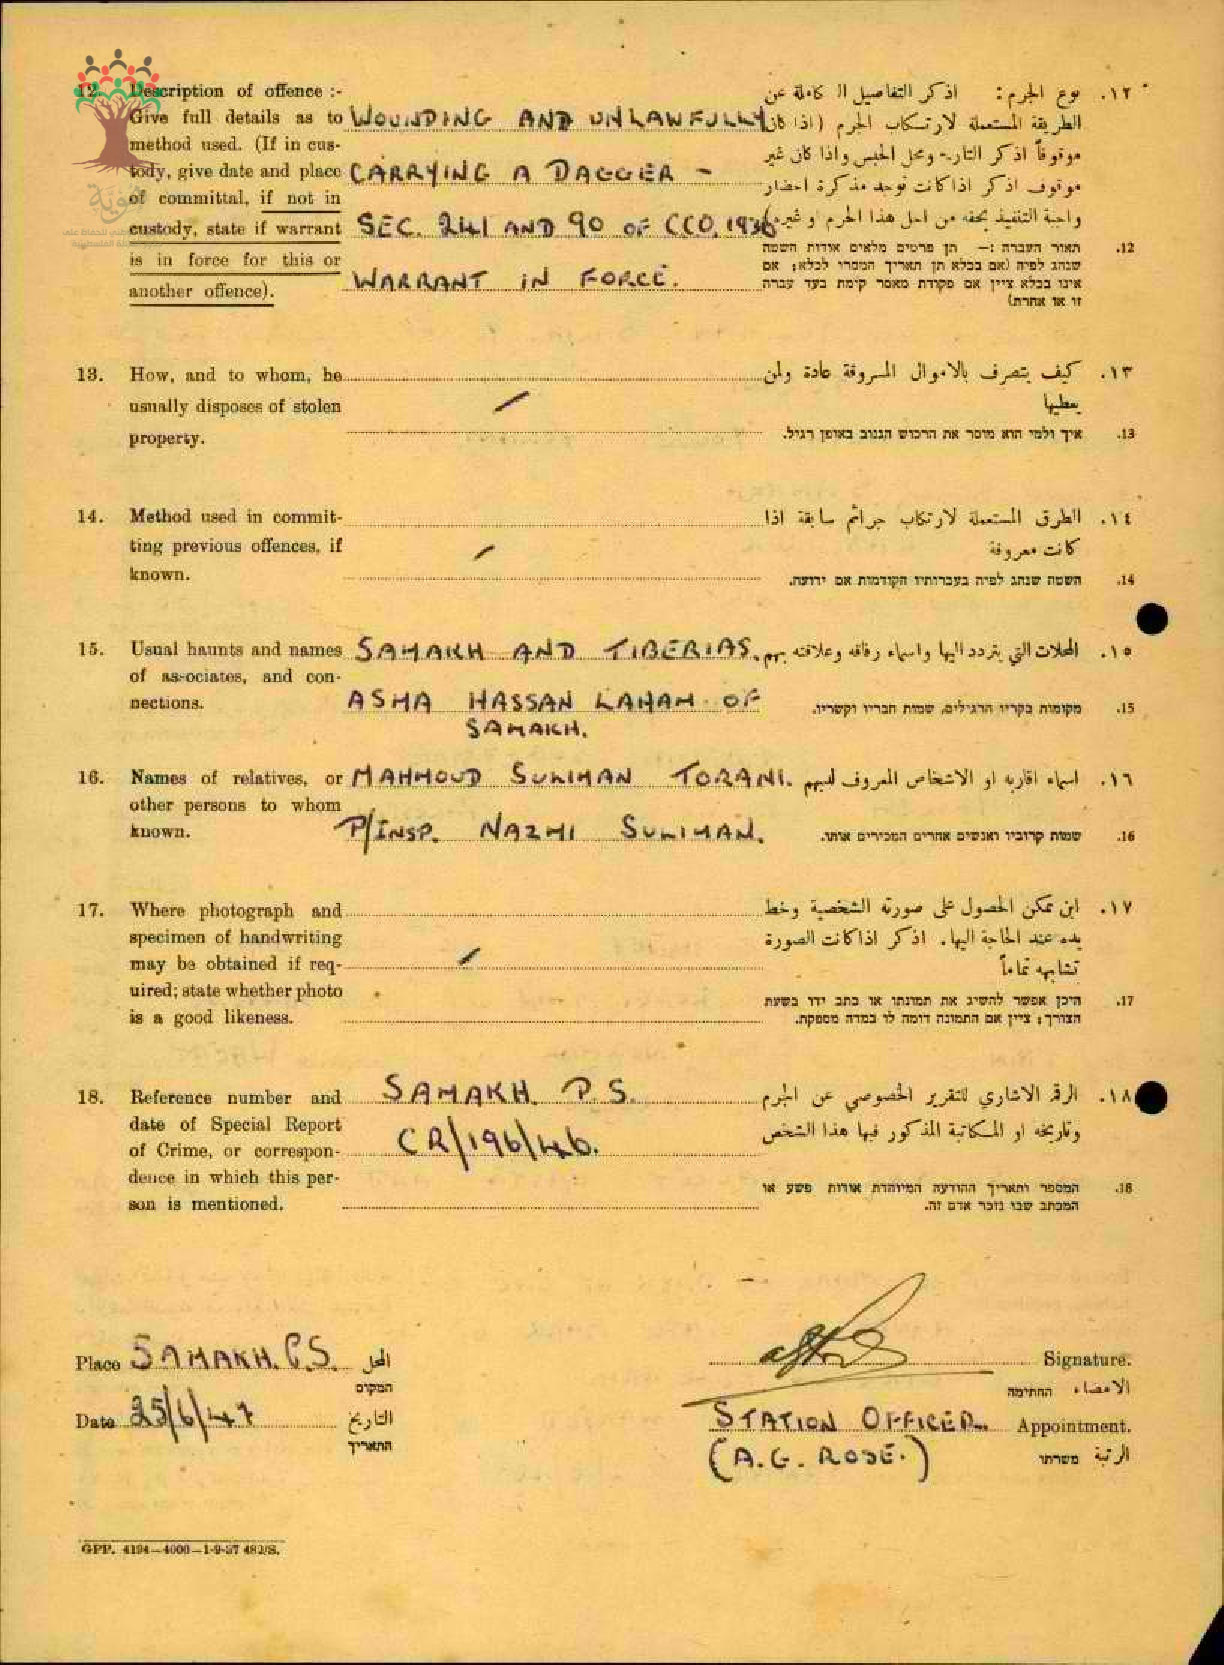 12. Description of offence :-
Give full details as to
method used. (If in cus-
tody, give date and place
of committal, if not in
custody, state if warrant
is in force for this or
another offence).
WOUNDING AND UNLAWFULLY
CARRYING A DAGGER -
SEC. 241 AND 90 OF CCO, 1936
WARRANT IN FORCE.
١٢. نوع الجرم: اذكر التفاصيل الكاملة عن
الطريقة المستعملة لارتكاب الجرم (اذا كان
موقوفاً اذكر التاريخ ومحل الحبس واذا كان غير
موقوف اذكر اذا كانت توجد مذكرة احضار
واجبة التنفيذ بحقه من اجل هذا الجرم او غيره)
12. תאור העברה :— תן פרטים מלאים אודות השטה
שנהג לפיה (אם בכלא תן תאריך המסרו לכלא; אם
אינו בכלא ציין אם פקודת מאסר קימת בעד עברה
זו או אחרת)
13. How, and to whom, he
usually disposes of stolen
property.
١٣. كيف يتصرف بالاموال المسروقة عادة ولمن
يعطيها
13. איך ולמי הוא מוסר את הרכוש הגנוב באופן רגיל.
14. Method used in commit-
ting previous offences, if
known.
١٤. الطرق المستعملة لارتكاب جرائم سابقة اذا
كانت معروفة
14. השטה שנהג לפיה בעברותיו הקודמות אם ידועה.
15. Usual haunts and names
of associates, and con-
nections.
SAMAKH AND TIBERIAS.
ASMA HASSAN LAHAM OF
SAMAKH.
١٥. المحلات التي يتردد اليها واسماء رفاقه وعلاقته بهم
15. מקומות בקריו הרגילים, שמות חבריו וקשריו.
16. Names of relatives, or
other persons to whom
known.
MAHMOUD SULIMAN TORANI.
P/INSP. NAZMI SULIMAN.
١٦. اسماء اقاربه او الاشخاص المعروف لديهم
16. שמות קרוביו ואנשים אחרים המכירים אותו.
17. Where photograph and
specimen of handwriting
may be obtained if req-
uired; state whether photo
is a good likeness.
١٧. اين يمكن الحصول على صورته الشخصية وخط
يده عند الحاجة اليها. اذكر اذا كانت الصورة
تشابهه تماماً
17. היכן אפשר להשיג את תמונתו או כתב ידו בשעת
הצורך; ציין אם התמונה דומה לו במדה מספקת.
18. Reference number and
date of Special Report
of Crime, or correspon-
dence in which this per-
son is mentioned.
SAMAKH. P.S.
CR/196/46.
١٨. الرقم الاشاري للتقرير الخصوصي عن الجرم
وتاريخه او المكاتبة المذكور فيها هذا الشخص
18. המספר ותאריך ההודעה המיוחדת אודות פשע או
המכתב שבו נזכר אדם זה.
Place SAMAKH. P.S. المحل
המקום
Date 25/6/47 التاريخ
התאריך
Signature.
الامضاء החתימה
STATION OFFICER. Appointment.
(A.G. ROSE.) الرتبة משרתו
GPP. 4194—4000—1-9-37 482/S.